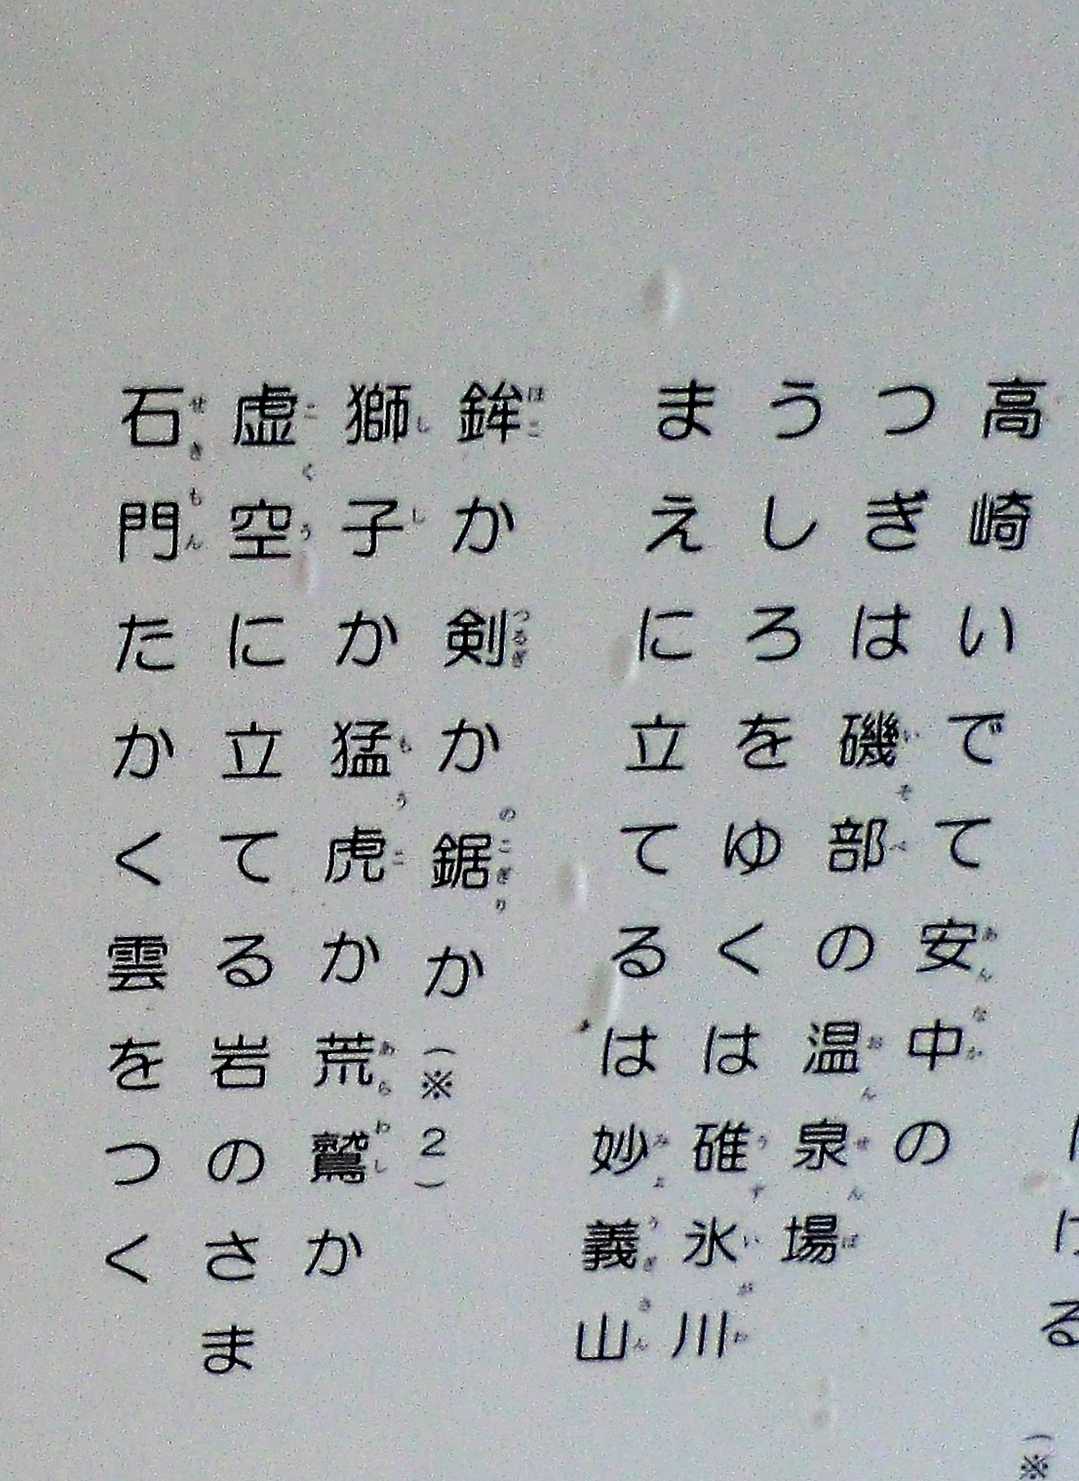 ける
(※
高崎いでて安中の
つぎは磯部の温泉場
うしろをゆくは碓氷川
まえに立てるは妙義山
鉾か剣か鋸か(※2)
獅子か猛虎か荒鷲か
虚空に立てる岩のさま
石門たかく雲をつく